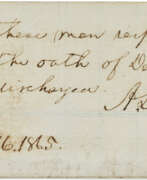 these men resp
the oath of De
discharged.
A. L
6. 1865.